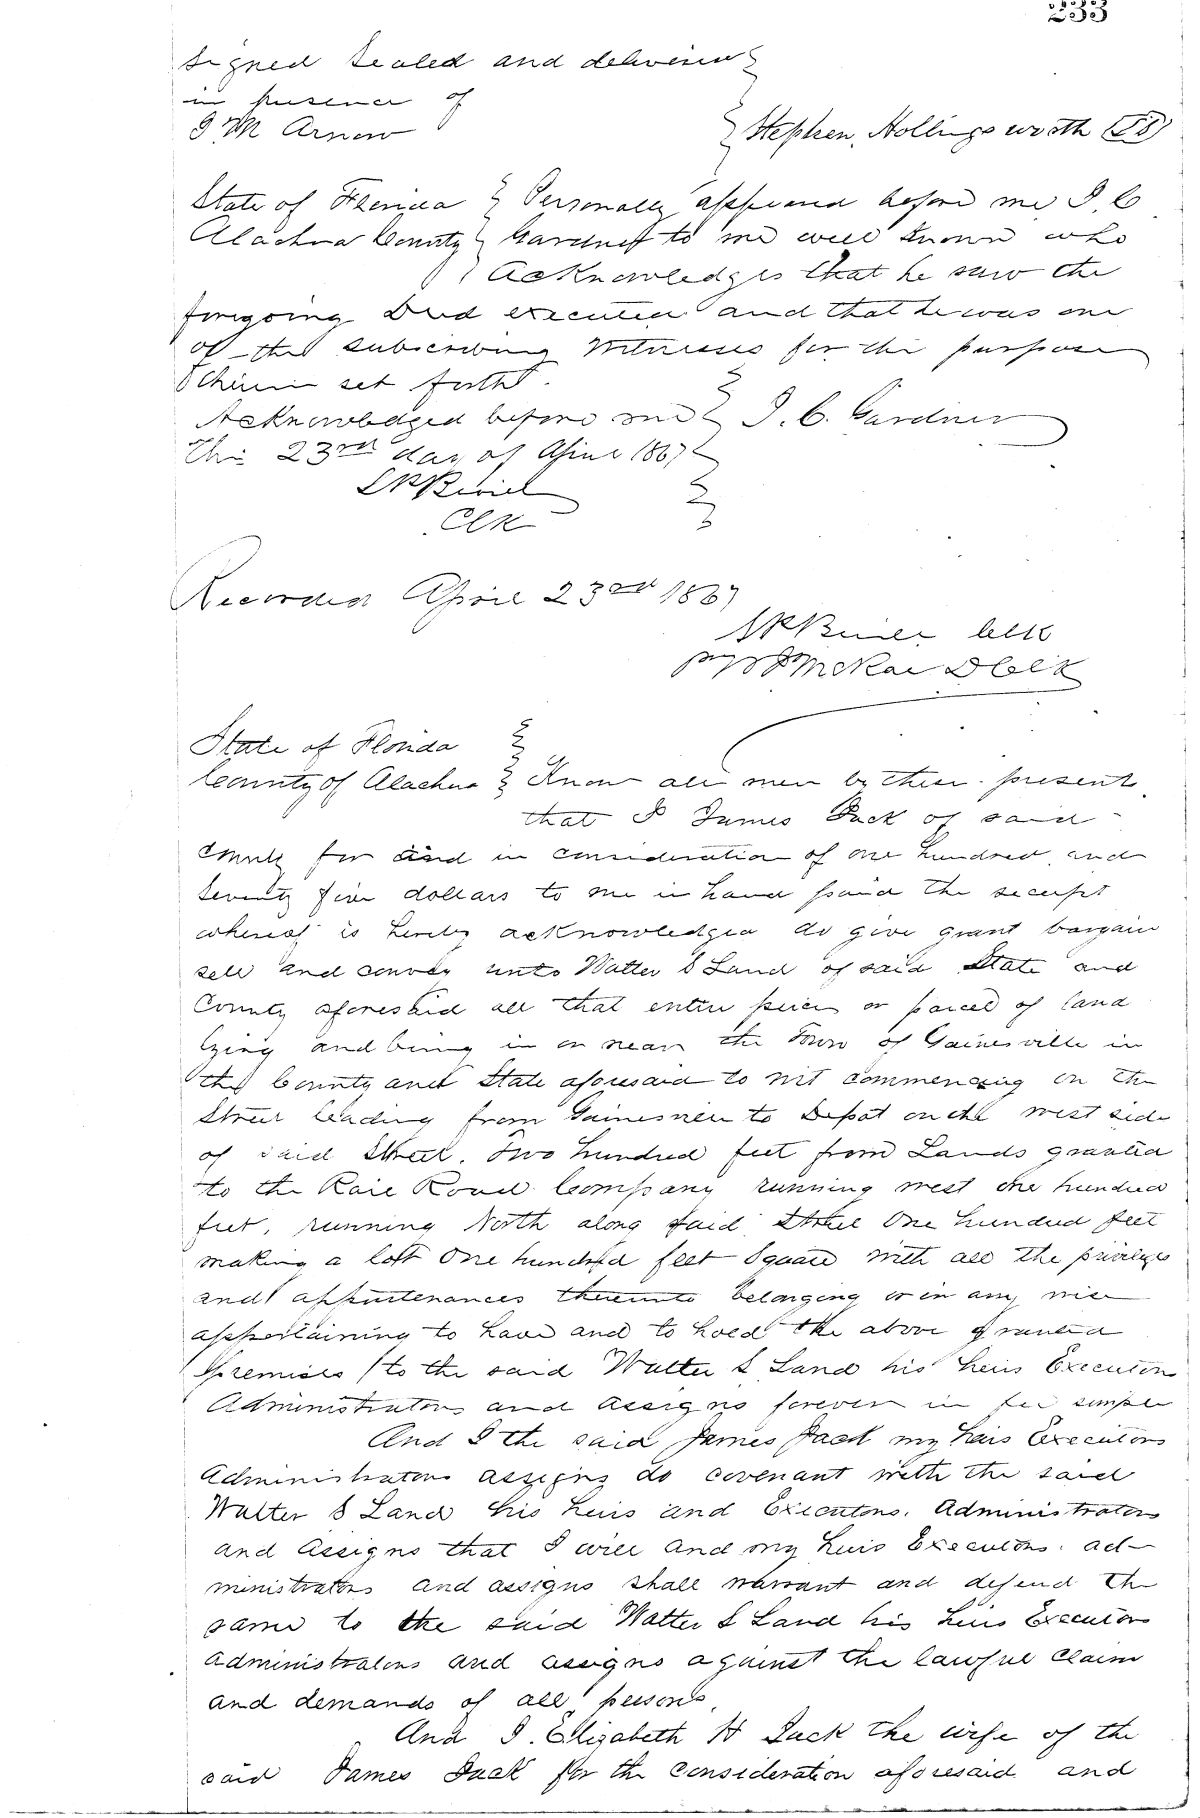 233
Signed Sealed and delivered
in presence of
J M Arnow
Stephen Hollingsworth (LS)
State of Florida } Personally appeared before me J. C
Alachua County } Gardner to me well known who
Acknowledges that he saw the
foregoing Deed executed and that he was one
of the subscribing Witnesses for the purpose
therein set forth.
Acknowledged before me } J. C. Gardner
This 23rd day of April 1867
Clk
Recorded April 23rd 1867
Clk
McKae D Clk
State of Florida }
County of Alachua } Know all men by these present
that I James Jack of said
County for and in consideration of one hundred and
Seventy five dollars to me in hand paid the receipt
whereof is hereby acknowledged do give grant bargain
sell and convey unto Walter S Land of said State and
County aforesaid all that entire piece or parcel of land
lying and being in or near the Town of Gainesville in
the County and State aforesaid to wit commencing on the
Street leading from Gainesville to Depot on the west side
of said Street. Two hundred feet from Lands granted
to the Rail Road Company running west one hundred
feet, running North along said Street One hundred feet
making a lott One hundred feet Square with all the privileges
and appurtenances thereunto belonging or in any wise
appertaining to have and to hold the above granted
premises to the said Walter S Land his heirs Executors
Administrators and assigns forever in fee simple
And I the said James Jack my heirs Executors
Administrators assigns do covenant with the said
Walter S Land his heirs and Executors. Administrators
and Assigns that I will and my heirs Executors. ad-
ministrators and assigns shall warrant and defend the
same to the said Walter S Land his heirs Executors
administrators and assigns against the lawful claims
and demands of all persons,
And I. Elizabeth H Jack the wife of the
said James Jack for the consideration aforesaid and